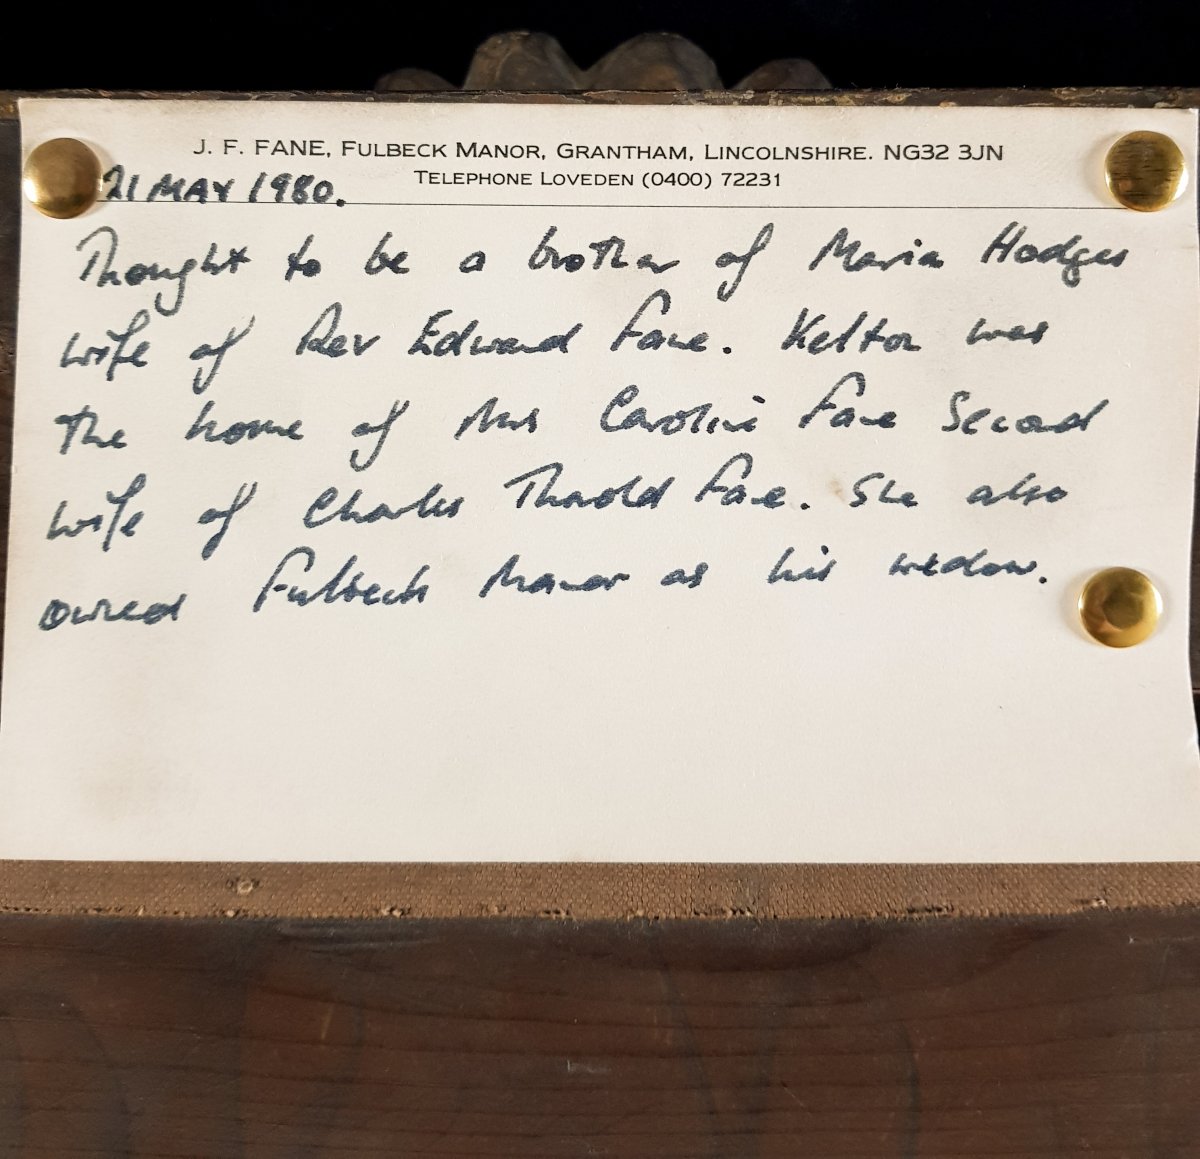 J. F. FANE, FULBECK MANOR, GRANTHAM, LINCOLNSHIRE. NG32 3JN
TELEPHONE LOVEDEN (0400) 72231
21 MAY 1980.
Thought to be a brother of Maria Hodges
wife of Rev Edward Fane. Kelton was
the home of Mrs Caroline Fane Second
wife of Charles Thorold Fane. She also
owned Fulbeck Manor as his widow.